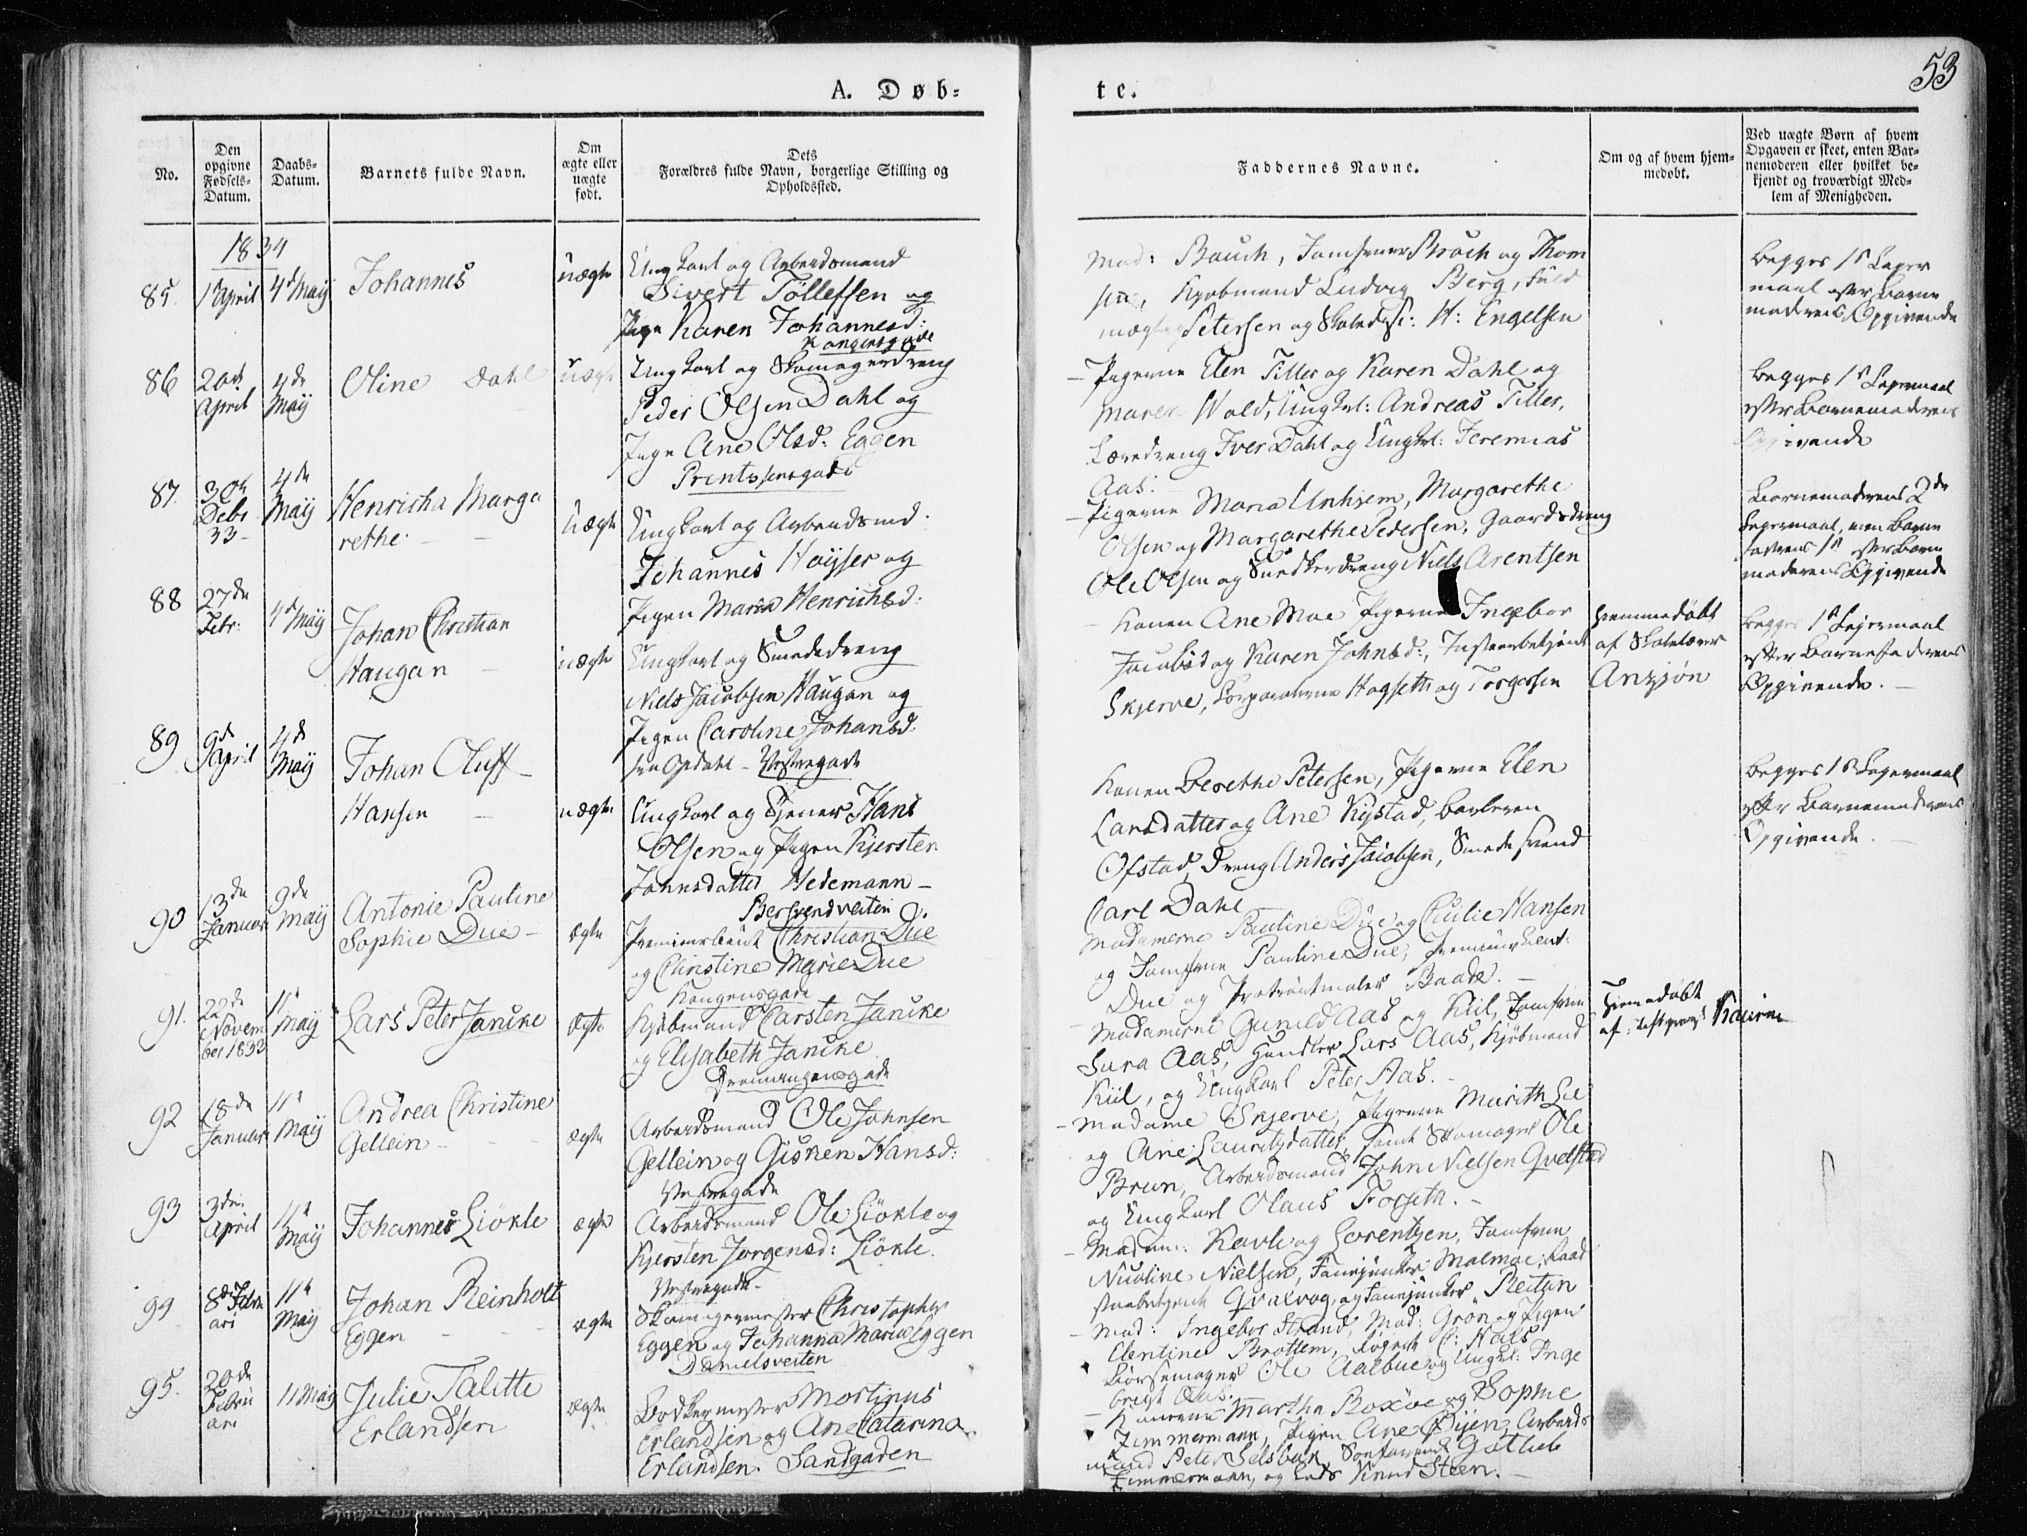 53
A. Døb-
te.
No.
Den opgivne Fødsels-Datum.
Daabs-Datum.
Barnets fulde Navn.
Om ægte eller uægte født.
Dets Forældres fulde Navn, borgerlige Stilling og Opholdssted.
Faddernes Navne.
Om og af hvem hjem-medøbt.
Ved uægte Børn af hvem Opgaven er skeet, enten Bar-nemoderen eller hvilket be-kjendt og troværdigt Med-lem af Menigheden.
1834
85. 1 April 4d Maij Johannes uægte Ungkarl og Arbeidsmand
Sivert Tølleffsen og
Pige Karen Johannesd:
Kongensgade
Mad: Bauch, Jomfruer Broch og Thom
sen, Kjøbmand Ludvig Berg, Fuld
mægtig Petersen og H: Engelsen
begges 1s Leger
maal efter Barne
moderens Opgivende
86 20de April 4de Maij Oline Dahl uægte Ungkarl og Skomagerdreng
Peder Olsen Dahl og
Pige Ane Olsd: Eggen
Printssensgade
- Pigerne Elen Tiller og Karen Dahl og
Maren Wold, Ungkrl: Andreas Tiller,
Læredreng Iver Dahl og Ungkrl: Jeremias
Aas.
begges 1s Legermaal
efter Barnemoderens
Opgivende
87. 30te Debr 33- 4de Maij Henricha Marga
rethe. uægte Ungkarl og Arbeidsmd.
Johannes Høyser og
Pigen Maria Henrichsd:
- Pigerne Maria Unhjem, Margarethe
Olsen og Margarethe Pedersen, Gaardsdreng
Ole Olsen og Snedkerdreng Niels Arentsen
Barnemoderens 2de
Legermaal, men Barne
faderens 1s efter Barne
moderens Opgivende
88 27de Febr: 4d Maij Johan Christian
Haugan uægte Ungkarl og Smededreng
Niels Jacobsen Haugan og
Pigen Caroline Johansd:
Opdahl - Vestregade
- Konen Ane Moe Pigerne Ingebor
Jacobsd og Karen Johnsd:,
Skjerve, Corporalerne Hogseth og Torgersen
hjemmedøbt
af Skolelærer
Anzjøn
begges 1s Lejermaal
efter Barnefaderens
Opgivende. -
89 9d April 4de Maij Johan Oluff
Hansen uægte Ungkarl og Tjener Hans
Olsen og Pigen Kjersten
Johnsdatter Hedemann -
Bersvendveiten
Konen Berethe Petersen, Pigerne Elen
Larsdatter og Ane Rystad,
Ofstad, Dreng Anders Jacobsen, Smedesvend
Carl Dahl
begges 1s Legermaal
efter Barnemoderens
Opgivende.
90 13de Januar 9de Maij Antonie Pauline
Sophie Due - ægte Premierleut Christian Due
og Christine Marie Due
Kongensgade
Madamerne Pauline Due og Cicilie Hansen
og Jomfrue Pauline Due, Premier Lieut:
Due og Portraitmaler Baade. -
91. 22de Novem
ber 1833 11t Maij Lars Peter Janicke ægte Kjøbmand Carsten Janicke
og Elisabeth Janicke
Dronningensgade
- Madamerne Gunild Aas og Kiil, Jomfrue
Sara Aas, Handler Lars Aas, Kjøbmand
Kiil, og Ungkarl Peter Aas. -
hjemedøbt
92 18de Januar 11t Maij Andrea Christine
Gellein - ægte Arbeidsmand Ole Johnsen
Gellein og Gisken Hansd:
Vestregade
- Madame Skjerve, Pigerne Marith Lie
og Ane Lauritzdatter, samt Skomager Ole
Brun, Arbeidsmand John Nielsen Qvelstad
og Ungkarl Olaus Forseth. -
93 3die April 11t Maij Johannes Liøkle ægte Arbeidsmand Ole Liøkle og
Kjersten Jørgensd: Liøkle.
Vestregade -
- Madm: Ravle og Lorentzen, Jomfrue
Nicoline Nielsen, Fanejunker Malmoe, Raad
stuebetjent Qvalvog, og Fanejunker Reitan
94 8d Febru
ari 11t Maij Johan Reinholt
Eggen ægte Skomagermester Christopher
Eggen og Johanna Maria Eggen
Danielsveiten
- Mad: Ingebor Strand, Mad: Grøn og Pigen
Elentine Brottem, C: Hals
Børsemager Ole Aalbue og Ungkl: Inge
brigt Aas.
95. 20de Febru
ari 11 Maij Julie Talitte
Erlandsen ægte Bødkermester Mortinus
Erlandsen og Ane Catarina
Erlandsen. Sandgaden
- Konerne Martha Roxøe og Sophie
Zimmermann, Pigen Ane Øijen, Arbeids
mand Peter Selsbak, Gotlieb
Zimmermann, og Knud Steen. -